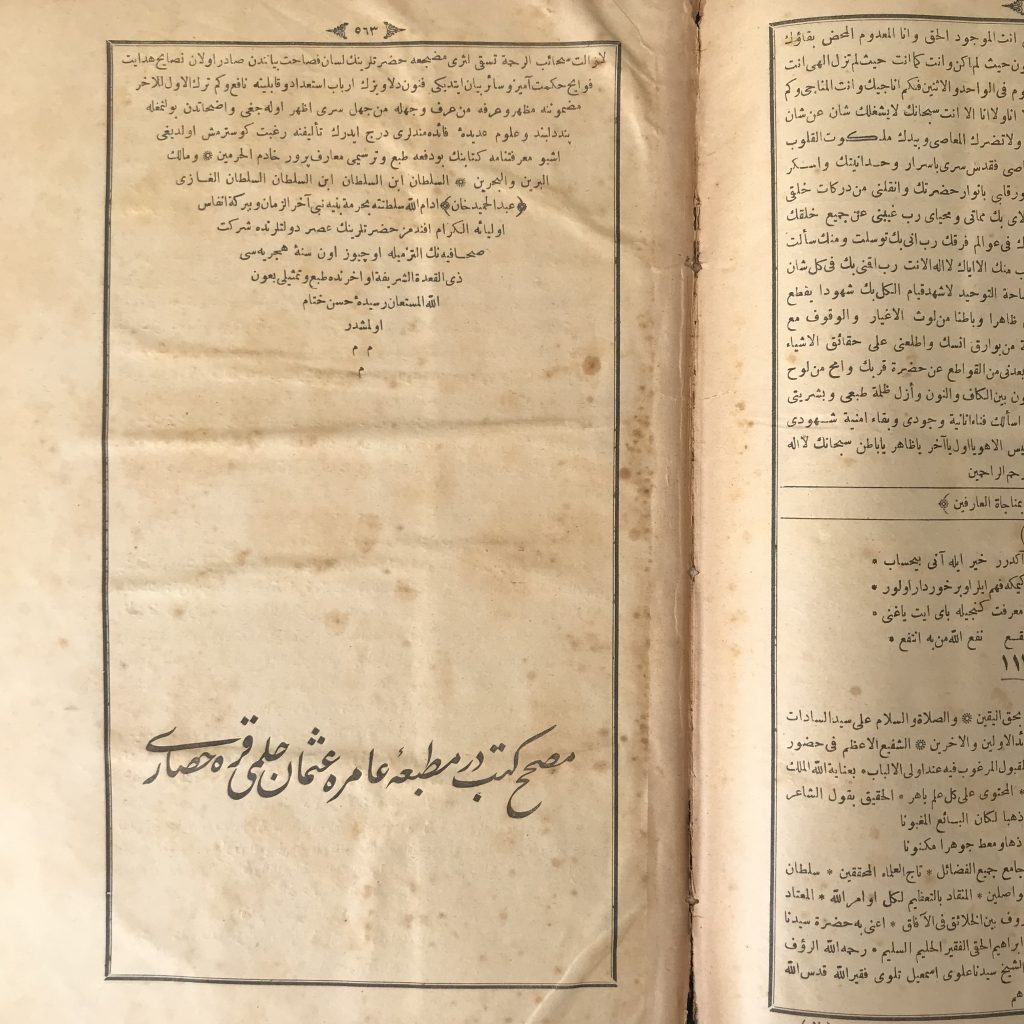 انت الموجود الحق وانا المعدوم المحض بقاؤك
ون حيث لم اكن وانت كما انت حيث لم تزل الهى انت
وم فى الواحد والاثنين فكم اناجيك وانت المناجى وكم
اناولا انا الا انت سبحانك لا يشغلك شان عن شان
ولا تضرك المعاصى وبيدك ملكوت القلوب
اصى فقدس سرى باسرار وحدانيتك واسكر
ورقلبى بانوار حضرتك وانقلنى من دركات خلقى
لاى بك مماتى ومحياى رب غيبنى عن جميع خلقك
ك فى عوالم فرقك رب انى بك توسلت ومنك سألت
ب منك الا اياك لا اله الا انت رب اقنى بك فى كل شان
احة التوحيد لاشهد قيام الكل بك شهودا يقطع
ظاهرا وباطنا من لوث الاغيار والوقوف مع
ة من بوارق انسك واطلعنى على حقائق الاشياء
بعدنى من القواطع عن حضرة قربك وامح من لوح
ون بين الكاف والنون وأزل ظلمة طبعى وبشريتى
اسألك فناء انانية وجودى وبقاء امنية شهودى
يس الاهو يا اول يا آخر ياظاهر ياباطن سبحانك لا اله
رحم الراحمين
بمناجاة العارفين
آكدرر خير ايله آنى بيحساب *
كيمكه فهم ايلر اوبر خوردار اولور *
معرفت كنجيله باى ايت ياغنى *
نفع الله من به انتفع *
بحق اليقين * والصلاة والسلام على سيد السادات
ئد الاولين والاخرين * الشفيع الاعظم فى حضور
لقبول المرغوب فيه عند اولى الالباب * بعناية الله الملك
* المحتوى على كل علم باهر * الحقيق بقول الشاعر
ذهبا لكان البائع المغبونا
ذهاومعط جوهرا مكنونا
جامع جميع الفضائل * تاج العلماء المحققين * سلطان
واصلين * المنقاد بالتعظيم لكل اوامر الله * المعتاد
روف بين الخلائق فى الآفاق * اعنى به حضرة سيدنا
ابراهيم الحقى الفقير الحليم السليم * رحمه الله الرؤف
الشيخ سيدنا علوى اسمعيل تلوى فقير الله قدس الله
هم
٥٦٣
لازالت سحائب الرحمة تسقى اثرى مضجعه حضرتلرينك لسان فصاحت بياندن صادر اولان نصايح هدايت
فوايح حكمت آميز وسائر بيان ايتديكى فنون دلاويزك ارباب استعداد وقابليته نافع وكم ترك الاول للاخر
مضموننه مظهر وعرفه من عرف وجهله من جهل سرى اظهر اوله جغى واضحاتدن بولنمغله
پند دلبند وعلوم عديدۀ فائده مندلرى درج ايدرك تأليفنه رغبت كوسترمش اولديغى
اشبو معرفتنامه كتابنك بودفعه طبع وترسيمى معارفپرور خادم الحرمين * ومالك
البرين والبحرين * السلطان ابن السلطان ابن السلطان السلطان الغازى
﴿عبد الحميد خان﴾ ادام الله سلطنته بحرمة بنيه نبى آخر الزمان وببركة انفاس
اوليائه الكرام افندمز حضرتلرينك عصر دولتلرنده شركت
صحافيه نك التزاميله اوچيوز اون سنۀ هجريه سى
ذى القعدة الشريفة اواخرنده طبع وتمثيلى بعون
الله المستعان رسيدۀ حسن ختام
اولمشدر
م م
م
مصحح كتب در مطبعۀ عامره عثمان حلمى قره حصارى